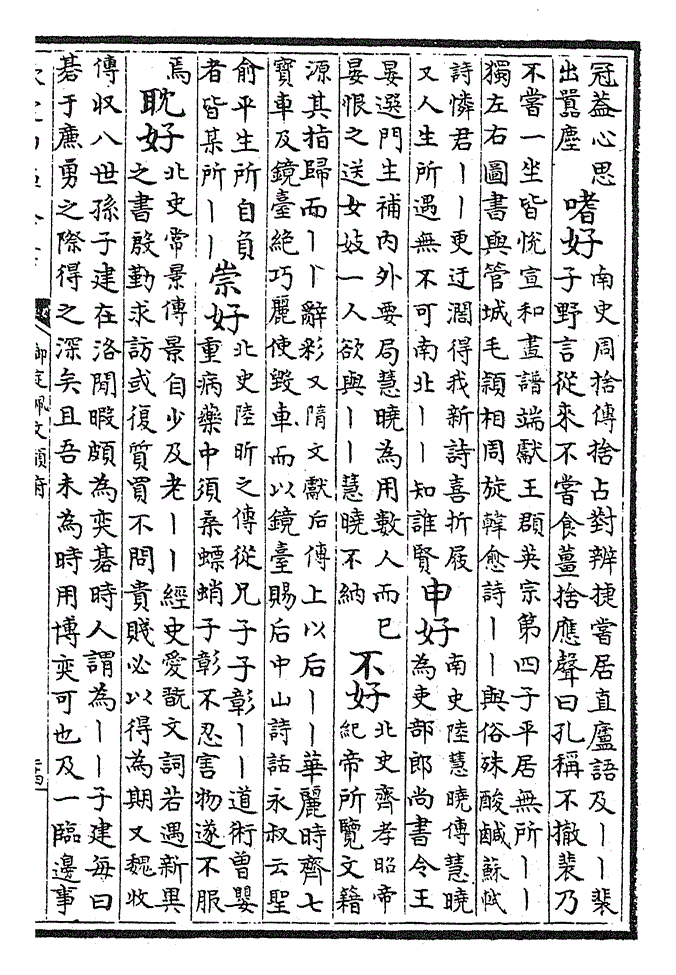 冠葢心思
出嚻塵
嗜好
南史周捨傳捨占對辨捷嘗居直廬語及丨丨裴
子野言從來不嘗食薑捨應聲曰孔稱不撤裴乃
不嘗一坐皆悅宣和畫譜端獻王頵英宗第四子平居無所丨丨
獨左右圖書與管城毛穎相周旋韓愈詩丨丨與俗殊酸鹹蘇軾
詩憐君丨丨更迂濶得我新詩喜折屐
又人生所遇無不可南北丨丨知誰賢
申好
南史陸慧曉傳慧曉
為吏部郎尚書令王
晏選門生補內外要局慧曉為用數人而已
晏恨之送女妓一人欲與丨丨慧曉不納
不好
北史齊孝昭帝
紀帝所覽文籍
源其指歸而丨丨辭彩又隋文獻后傳上以后丨丨華麗時齊七
寳車及鏡臺絶巧麗使毀車而以鏡臺賜后中山詩話永叔云聖
俞平生所自負
者皆某所丨丨
崇好
北史陸昕之傳從兄子子彰丨丨道術曾嬰
重病藥中須桑螵蛸子彰不忍害物遂不服
焉
耽好
北史常景傳景自少及老丨丨經史愛翫文詞若遇新異
之書殷勤求訪或復質買不問貴賤必以得為期又魏收
傳収八世孫子建在洛閒暇頗為奕碁時人謂為丨丨子建每曰
碁于㢘勇之際得之深矣且吾未為時用博奕可也及一臨邊事
御定佩文韻府